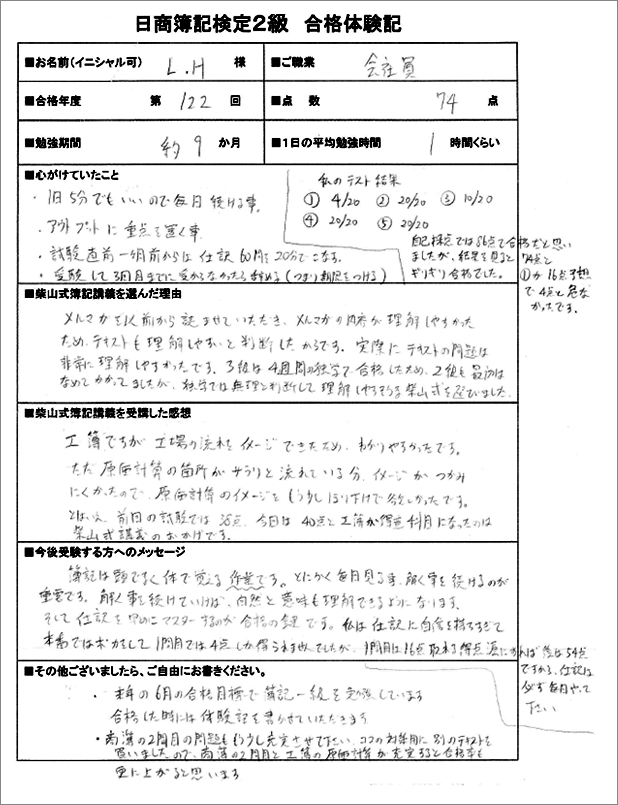 日商簿記検定2級 合格体験記
■お名前(イニシャル可) L.H 様 ■ご職業 会社員
■合格年度 第 122 回 ■点 数 74 点
■勉強期間 約 9 か月 ■1日の平均勉強時間 1 時間くらい
■心がけていたこと
・1日5分でもいいので毎日続ける事。
・アウトプットに重点を置く事
・試験直前一ヶ月前からは仕訳60問を20分でこなす。
・受験して3回目までに受からなかったら諦める(つまり期限をつける)
私のテスト結果
① 4/20 ② 20/20 ③ 10/20
④ 20/20 ⑤ 20/20
自己採点では86点で合格だと思い
ましたが、結果を見ると74点と
ギリギリ合格でした。
①が16点予想
で4点と危な
かったです。
■柴山式簿記講義を選んだ理由
メルマガを以前から読ませていただき、メルマガの内容が理解しやすかった
ため、テキストも理解しやすいと判断したからです。実際にテキストの問題は
非常に理解しやすかったです。3級は4週間の独学で合格したため、2級も最初は
なめてかかってましたが、独学では無理と判断して理解しやすそうな柴山式を選びました。
■柴山式簿記講義を受講した感想
工簿ですが工場の流れをイメージできたため、わかりやすかったです。
ただ原価計算の箇所がサラリと流れている分、イメージがつかみ
にくかったので、原価計算のイメージをもう少しほり下げて欲しかったです。
とはいえ、前回の試験では 点、今回は40点と工簿が得意科目になったのは
柴山式講義のおかげです。
■今後受験する方へのメッセージ
簿記は頭でなく体で覚える作業です。とにかく毎日見る事、解く事を続けるのが
重要です。解く事を続けていけば、自然と意味も理解できるようになります。
そして仕訳を 中心にマスターするのが合格の鍵です。私は仕訳に自信を持ちすぎて
本番ではポカをして1問目では4点しか得られませんでしたが、1問目は16点取れる得点源にすれば後は54点
ですから、仕訳は
必ず毎日やって
下さい
■その他ございましたら、ご自由にお書きください。
・来年の6月の合格目標で簿記一級を勉強しています
合格した時には体験記を書かせていただきます
・商簿の2問目の問題ももう少し充実させて下さい。ココの対策用に別のテキストを
買いましたので、商簿の2問目と工簿の原価計算が充実すると合格率も
更に上がると思います